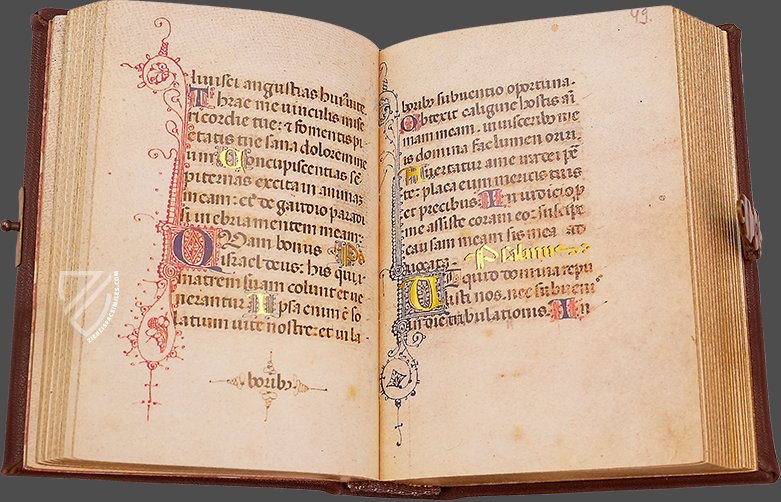 luisci angustias huiꝰ uite
Trahe me uinculis mise
ricordie tue: et fomentis pi
etatis tue sana dolorem me
um Concupiscentias sē
piternas excita in anima
meam: et de gaudio paradi
si inebria mentem meam:
Quam bonus Ps
israel deus: his qui
matrem suam colunt et ue
nerantur Ipsa enim ē so
latium uite nostre: et in la
boribꝫ
49.
boribꝫ subuentio oportuna.
Obtexit caligine hostis aī
mam meam: in uisceribꝫ me
is domina fac lumen oriri.
Auertatur a me ira dei p
te: placa eum meritis tuis
et precibus: In iudicio p
me assiste coram eo: suscipe
causam meam sis mea ad
uocata. Psalmus
Ut quid domina repu
listi nos: nec subueni
in die tribulationis. In
ZIEREIS FACSIMILES.COM